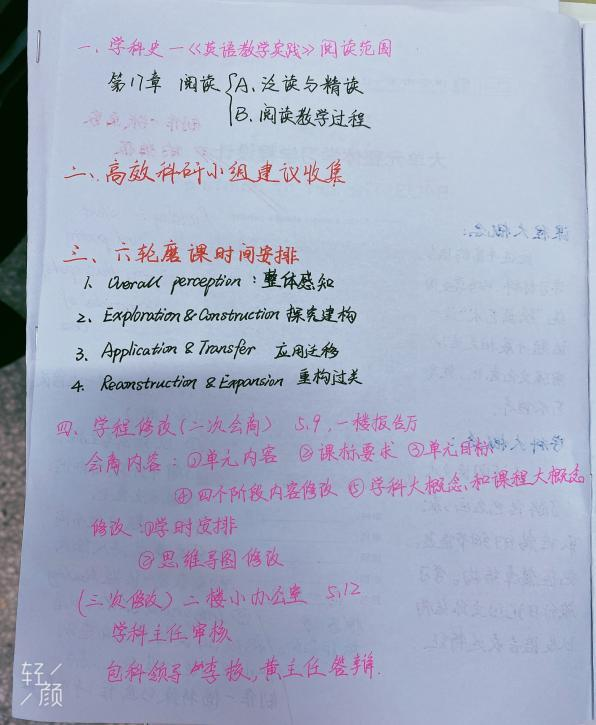 一、学科史一《英语教学实践》阅读范围
第17章 阅读{A、泛读与精读
B、阅读教学过程
二、高效科研小组建议收集
三、六轮磨课时间安排
1. Overall perception：整体感知
2、Exploration & Construction 探究建构
3、Application & Transfer 应用迁移
4、Reconstruction & Expansion 重构过关
四、学程修改(二次会商) 5.9,一楼报告厅
会商内容：①单元内容 ②课标要求 ③单元目标
④四个阶段内容修改 ⑤学科大概念、和课程大概念.
修改：①学时安排
②思维导图修改
(三次修改) 二楼小办公室 5.12
学科主任审核
包科领导 李校,黄主任答辩.
轻颜